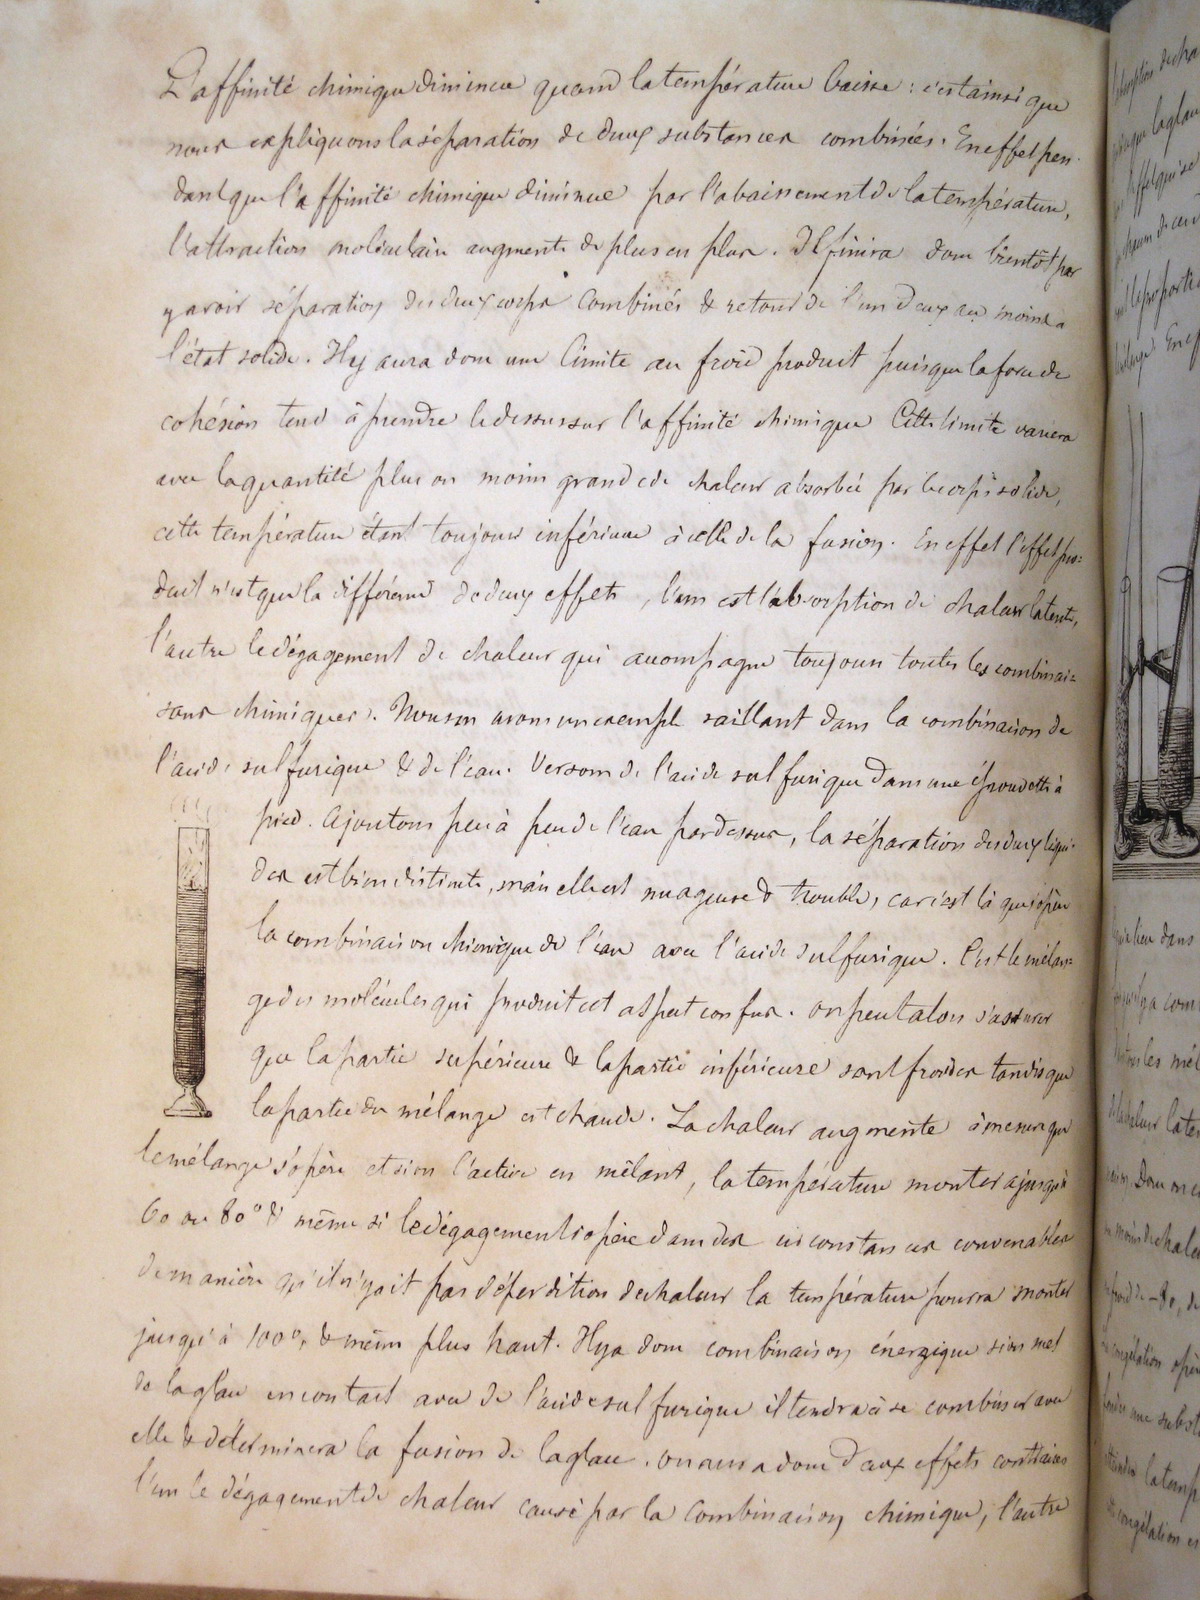 L'affinité chimique diminue quand la température baisse : c'est ainsi que
nous expliquons la séparation de deux substances combinées. En effet pen-
dant que l'affinité chimique diminue par l'abaissement de la température,
l'attraction moléculaire augmente de plus en plus. Il finira donc bientôt par
y avoir séparation des deux corps combinés & retour de l'un d'eux au moins à
l'état solide. Il y aura donc une limite au froid produit puisque la force de
cohésion tend à prendre le dessus sur l'affinité chimique Cette limite variera
avec la quantité plus ou moins grande de chaleur absorbée par le corps solide,
cette température étant toujours inférieure à celle de la fusion. En effet l'effet pro=
duit n'est que la différence de deux effets, l'un est l'absorption de chaleur latente,
l'autre le dégagement de chaleur qui accompagne toujours toutes les combinai=
sons chimiques. Nous en avons un exemple saillant dans la combinaison de
l'acide sulfurique & de l'eau. Versons de l'acide sulfurique dans une éprouvette à
pied. Ajoutons peu à peu de l'eau par dessus, la séparation des deux liqui-
des est bien distincte, mais elle est nuageuse & trouble, car c'est là que s'opère
la combinaison chimique de l'eau avec l'acide sulfurique. C'est le mélan=
ge des molécules qui produit cet aspect confus. On peut alors s'assurer
que la partie supérieure & la partie inférieure sont froides tandis que
la partie du mélange est chaude. La chaleur augmente à mesure que
le mélange s'opère et si on l'active en mêlant, la température montera jusqu'à
60 ou 80° & même si le dégagement s'opère dans des circonstances convenables
de manière qu'il n'y ait pas déperdition de chaleur la température pourra monter
jusqu'à 100°, & même plus haut. Il y a donc combinaison énergique si on met
de la glace en contact avec de l'acide sulfurique il tendra à se combiner avec
elle & déterminera la fusion de la glace. on aura donc deux effets contraires
l'un le dégagement de chaleur causé par la combinaison chimique, l'autre